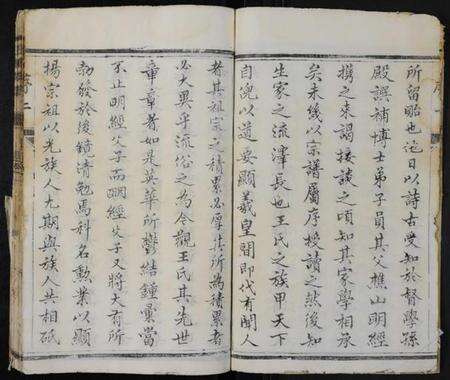 所留貽也近日以詩古受知於督學孫
殿譔補博士弟子員其父樵山明經
携之来謁接談之頃知其家學相承
矣未幾以宗譜屬序授讀之然後知
生家之流澤長也王氏之族甲天下
自傀以道要顯羲皇間即代有聞人
者其祖宗之積累必厚其所為積累者
必大異乎流俗之為令觀王氏其先世
章章者如是英華所鬱結鍾彙當
不止明經父子而明經父子又將大有所
勃發於後鏡清勉焉科名勲業以顯
揚宗祖以光族人尤期與族人共相砥
序二